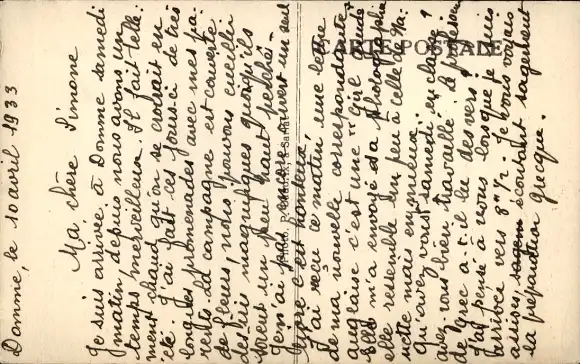 Domme, le 10 avril 1933
Ma chère Simone
Je suis arrivée à Domme samedi
matin, depuis nous avons un
temps merveilleux. Il fait telle-
ment chaud qu'on se croirait en
été. J'ai fait ces jours-ci de très
longues promenades avec mes pa-
rents. La campagne est couverte
de fleurs, nous pouvons cueillir
des iris magnifiques quoiqu'ils
soient un peu haut perchés.
Je n'ai pas encore ouvert un seul
livre c'est honteux.
J'ai reçu ce matin, une lettre
de ma nouvelle correspondante
anglaise c'est une "Girl Guide"
elle m'a envoyé sa photographie
elle ressemble un peu à celle de
cette mais en mieux.
Qu'avez vous samedi, en classe?
avez vous bien travaillé. Le professeur
de grec a-t-il lu des vers?
J'ai pensé à vous lorsque je suis
arrivée vers 8h 1/2. Je vous voyais
assises, sagem écoutant sagement
la préparation grecque.
CARTE POSTALE